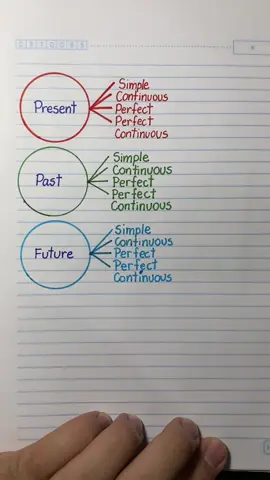 Present
Simple
Continuous
Perfect
Perfect
Continuous
Past
Simple
Continuous
Perfect
Perfect
Continuous
Future
Simple
Continuous
Perfect
Perfect
Continuous